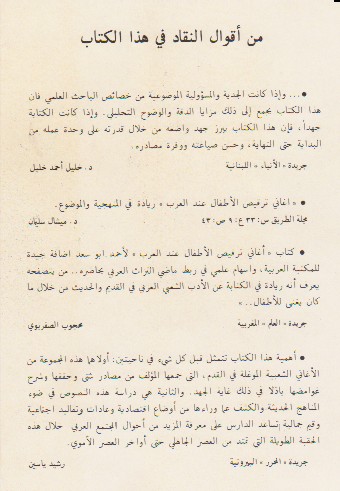 من أقوال النقاد في هذا الكتاب
• ... وإذا كانت الجدية والمسؤولية الموضوعية من خصائص الباحث العلمي فان
هذا الكتاب يجمع إلى ذلك مزايا الدقة والوضوح التحليلي. وإذا كانت الكتابة
جهداً، فإن هذا الكتاب يبرز جهد واضعه من خلال قدرته على وحدة عمله من
البداية حتى النهاية، وحسن صياغته ووفرة مصادره.
جريدة «الأنباء» اللبنانية د. خليل أحمد خليل
• « اغاني ترقيص الأطفال عند العرب » ريادة في المنهجية والموضوع.
مجلة الطريق س: ٣٣ ع: ٩ ص: ٤٣ د. ميشال سليمان
• كتاب « أغاني ترقيص الأطفال عند العرب » لأحمد ابو سعد اضافة جيدة
للمكتبة العربية، واسهام علمي في ربط ماضي التراث العربي بحاضره.. من يتصفحه
يعرف أنه ريادة في الكتابة عن الأدب الشعبي العربي في القديم والحديث من خلال ما
كان يغنى للأطفال.. »
جريدة « العلم » المغربية محجوب الصفريوي
• أهمية هذا الكتاب تتمثل قبل كل شيء في ناحيتين: أولاهما هذه المجموعة من
الأغاني الشعبية الموغلة في القدم، التي جمعها المؤلف من مصادر شتى وحققها وشرح
غوامضها باذلا في ذلك غاية الجهد. والثانية هي دراسة هذه النصوص في ضوء
المناهج الحديثة والكشف عما وراءها من أوضاع اقتصادية وعادات وتقاليد اجتماعية
وقيم جمالية تساعد الدارس على معرفة المزيد من أحوال المجتمع العربي خلال هذه
الحقبة الطويلة التي تمتد من العصر الجاهلي حتى أواخر العصر الأموي.
جريدة « المحرر » البيروتية رشيد ياسين